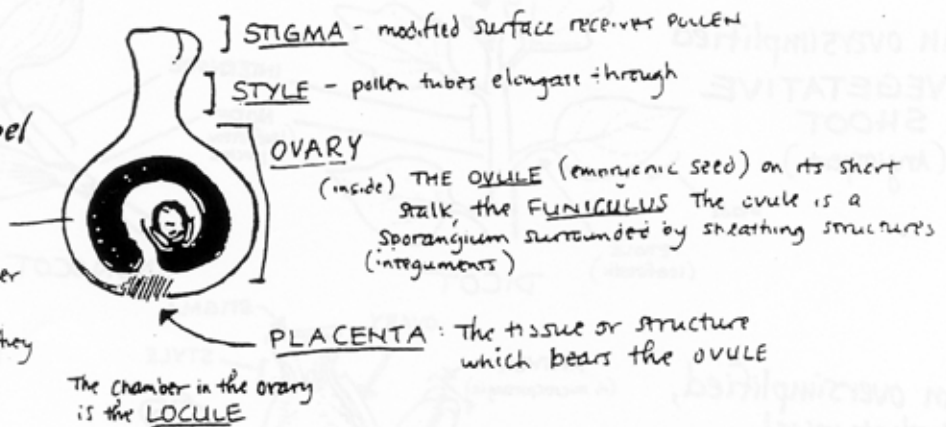 STIGMA - modified surface receives POLLEN
STYLE - pollen tubes elongate through
OVARY
(inside) THE OVULE (embryonic seed) on its short
stalk, the FUNICULUS The ovule is a
sporangium surrounded by sheathing structures
(integuments)
they
PLACENTA: The tissue or structure
which bears the OVULE
The chamber in the ovary
is the LOCULE
an oversimplified
VEGETATIVE
SHOOT
STYLE
an oversimplified,